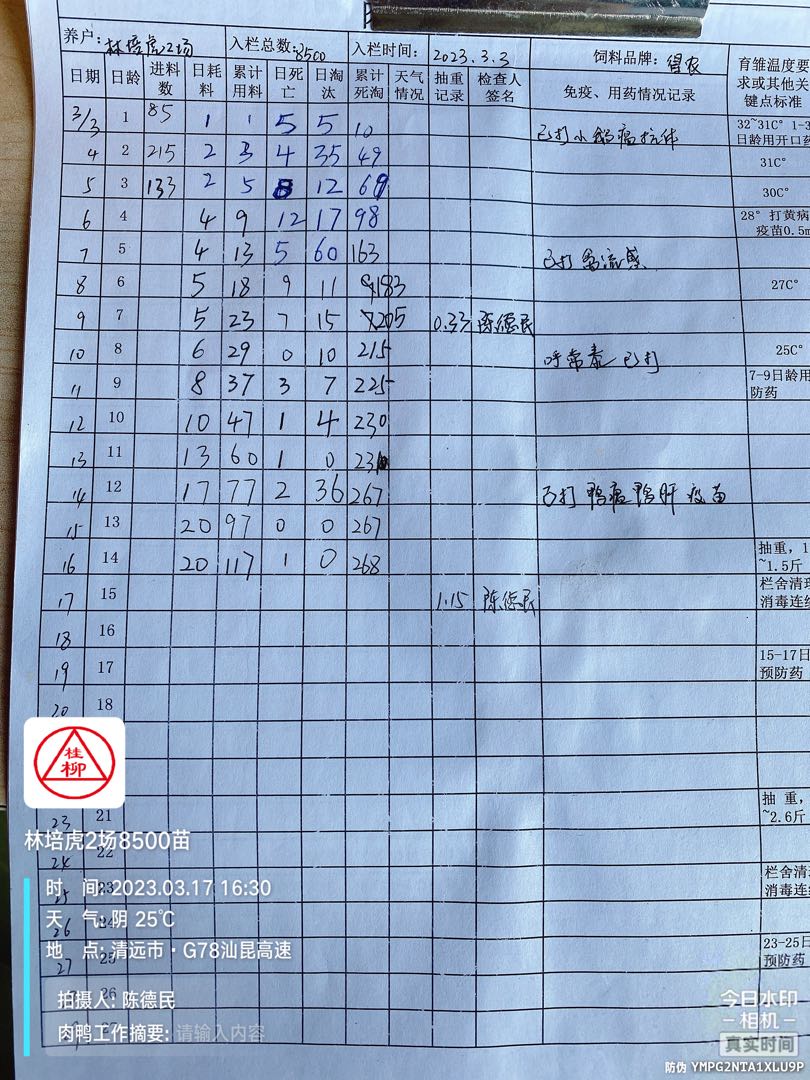 养户: 林培虎2场 入栏总数: 8500 入栏时间: 2023.3.3 饲料品牌: 育雏温度要求或其他关键点标准
日期 日龄 进料数 日耗料 累计用料 日死亡 日淘汰 累计死淘 天气情况 抽重记录 检查人签名 免疫、用药情况记录
3/3 1 85 1 1 5 5 10 已打小鹅瘟抗体 32~31C° 1-3日龄用开口药
4 2 215 2 3 4 35 49 31C°
5 3 133 2 5 8 12 69 30C°
6 4 4 9 12 17 98 28° 打黄病疫苗0.5m
7 5 4 13 5 60 163 已打禽流感
8 6 5 18 9 11 183 27C°
9 7 5 23 7 15 205 0.33 陈德民
10 8 6 29 0 10 215 呼常泰已打 25C°
11 9 8 37 3 7 225 7-9日龄用防药
12 10 10 47 1 4 230
13 11 13 60 1 0 231
14 12 17 77 2 36 267 已打鸭瘟鸭肝疫苗
15 13 20 97 0 0 267
16 14 20 117 1 0 268 抽重, 1~1.5斤
17 15 1.15 陈德民 栏舍清理消毒连续
18 16
19 17 15-17日预防药
20 18
桂柳
23 21 抽 重, ~2.6斤
林培虎2场8500苗
24 22
时 间: 2023.03.17 16:30
25 23 栏舍清理消毒连续
天 气: 阴 25℃
26 24
地 点: 清远市·G78汕昆高速
27 25 23-25日预防药
26
拍摄人: 陈德民
肉鸭工作摘要: 请输入内容
今日水印
-相机-
真实时间
防伪 YMPG2NTA1XLU9P